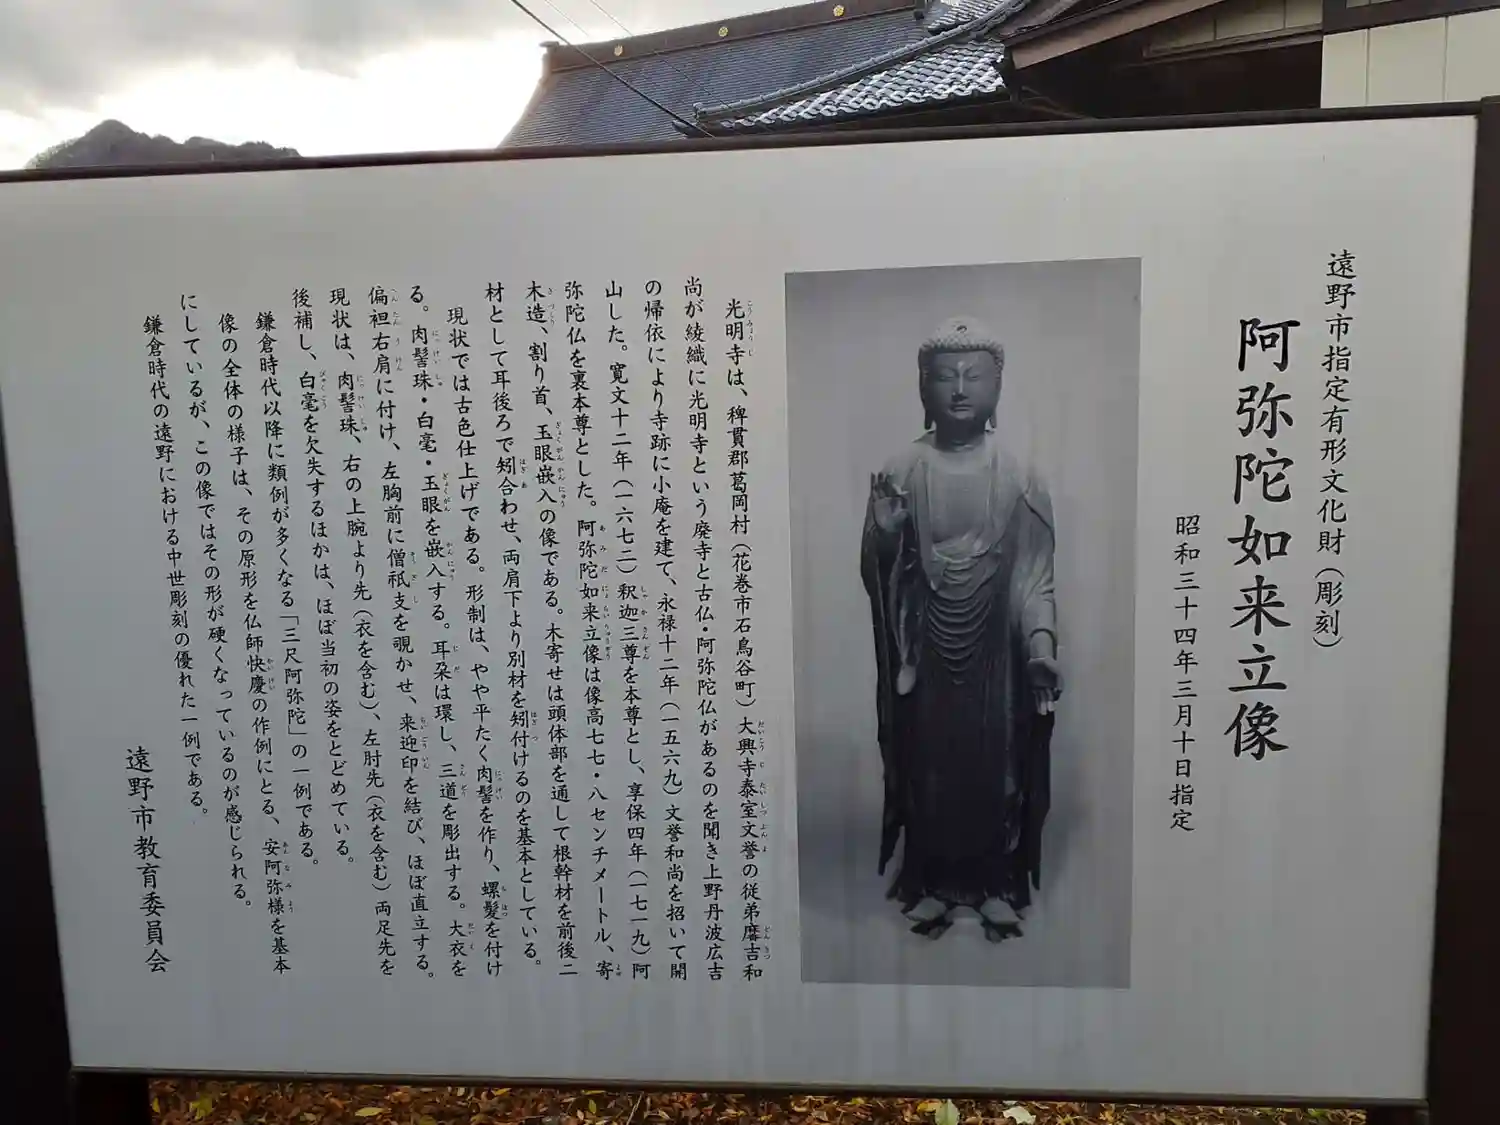 遠野市指定有形文化財（彫刻）
阿弥陀如来立像
昭和三十四年三月十日指定
光明寺は、稗貫郡葛岡村（花巻市石鳥谷町）大興寺泰室文誉の従弟麐吉和
尚が綾織に光明寺という廃寺と古仏・阿弥陀仏があるのを聞き上野丹波広吉
の帰依により寺跡に小庵を建て、永禄十二年（一五六九）文誉和尚を招いて開
山した。寛文十二年（一六七二）釈迦三尊を本尊とし、享保四年（一七一九）阿
弥陀仏を裏本尊とした。阿弥陀如来立像は像高七七・八センチメートル、寄
木造、割り首、玉眼嵌入の像である。木寄せは頭体部を通して根幹材を前後二
材として耳後ろで矧合わせ、両肩下より別材を矧付けるのを基本としている。
現状では古色仕上げである。形制は、やや平たく肉髻を作り、螺髪を付け
る。肉髻珠・白毫・玉眼を嵌入する。耳朶は環し、三道を彫出する。大衣を
偏袒右肩に付け、左胸前に僧祇支を覗かせ、来迎印を結び、ほぼ直立する。
現状は、肉髻珠、右の上腕より先（衣を含む）、左肘先（衣を含む）両足先を
後補し、白毫を欠失するほかは、ほぼ当初の姿をとどめている。
鎌倉時代以降に類例が多くなる「三尺阿弥陀」の一例である。
像の全体の様子は、その原形を仏師快慶の作例にとる、安阿弥様を基本
にしているが、この像ではその形が硬くなっているのが感じられる。
鎌倉時代の遠野における中世彫刻の優れた一例である。
遠野市教育委員会